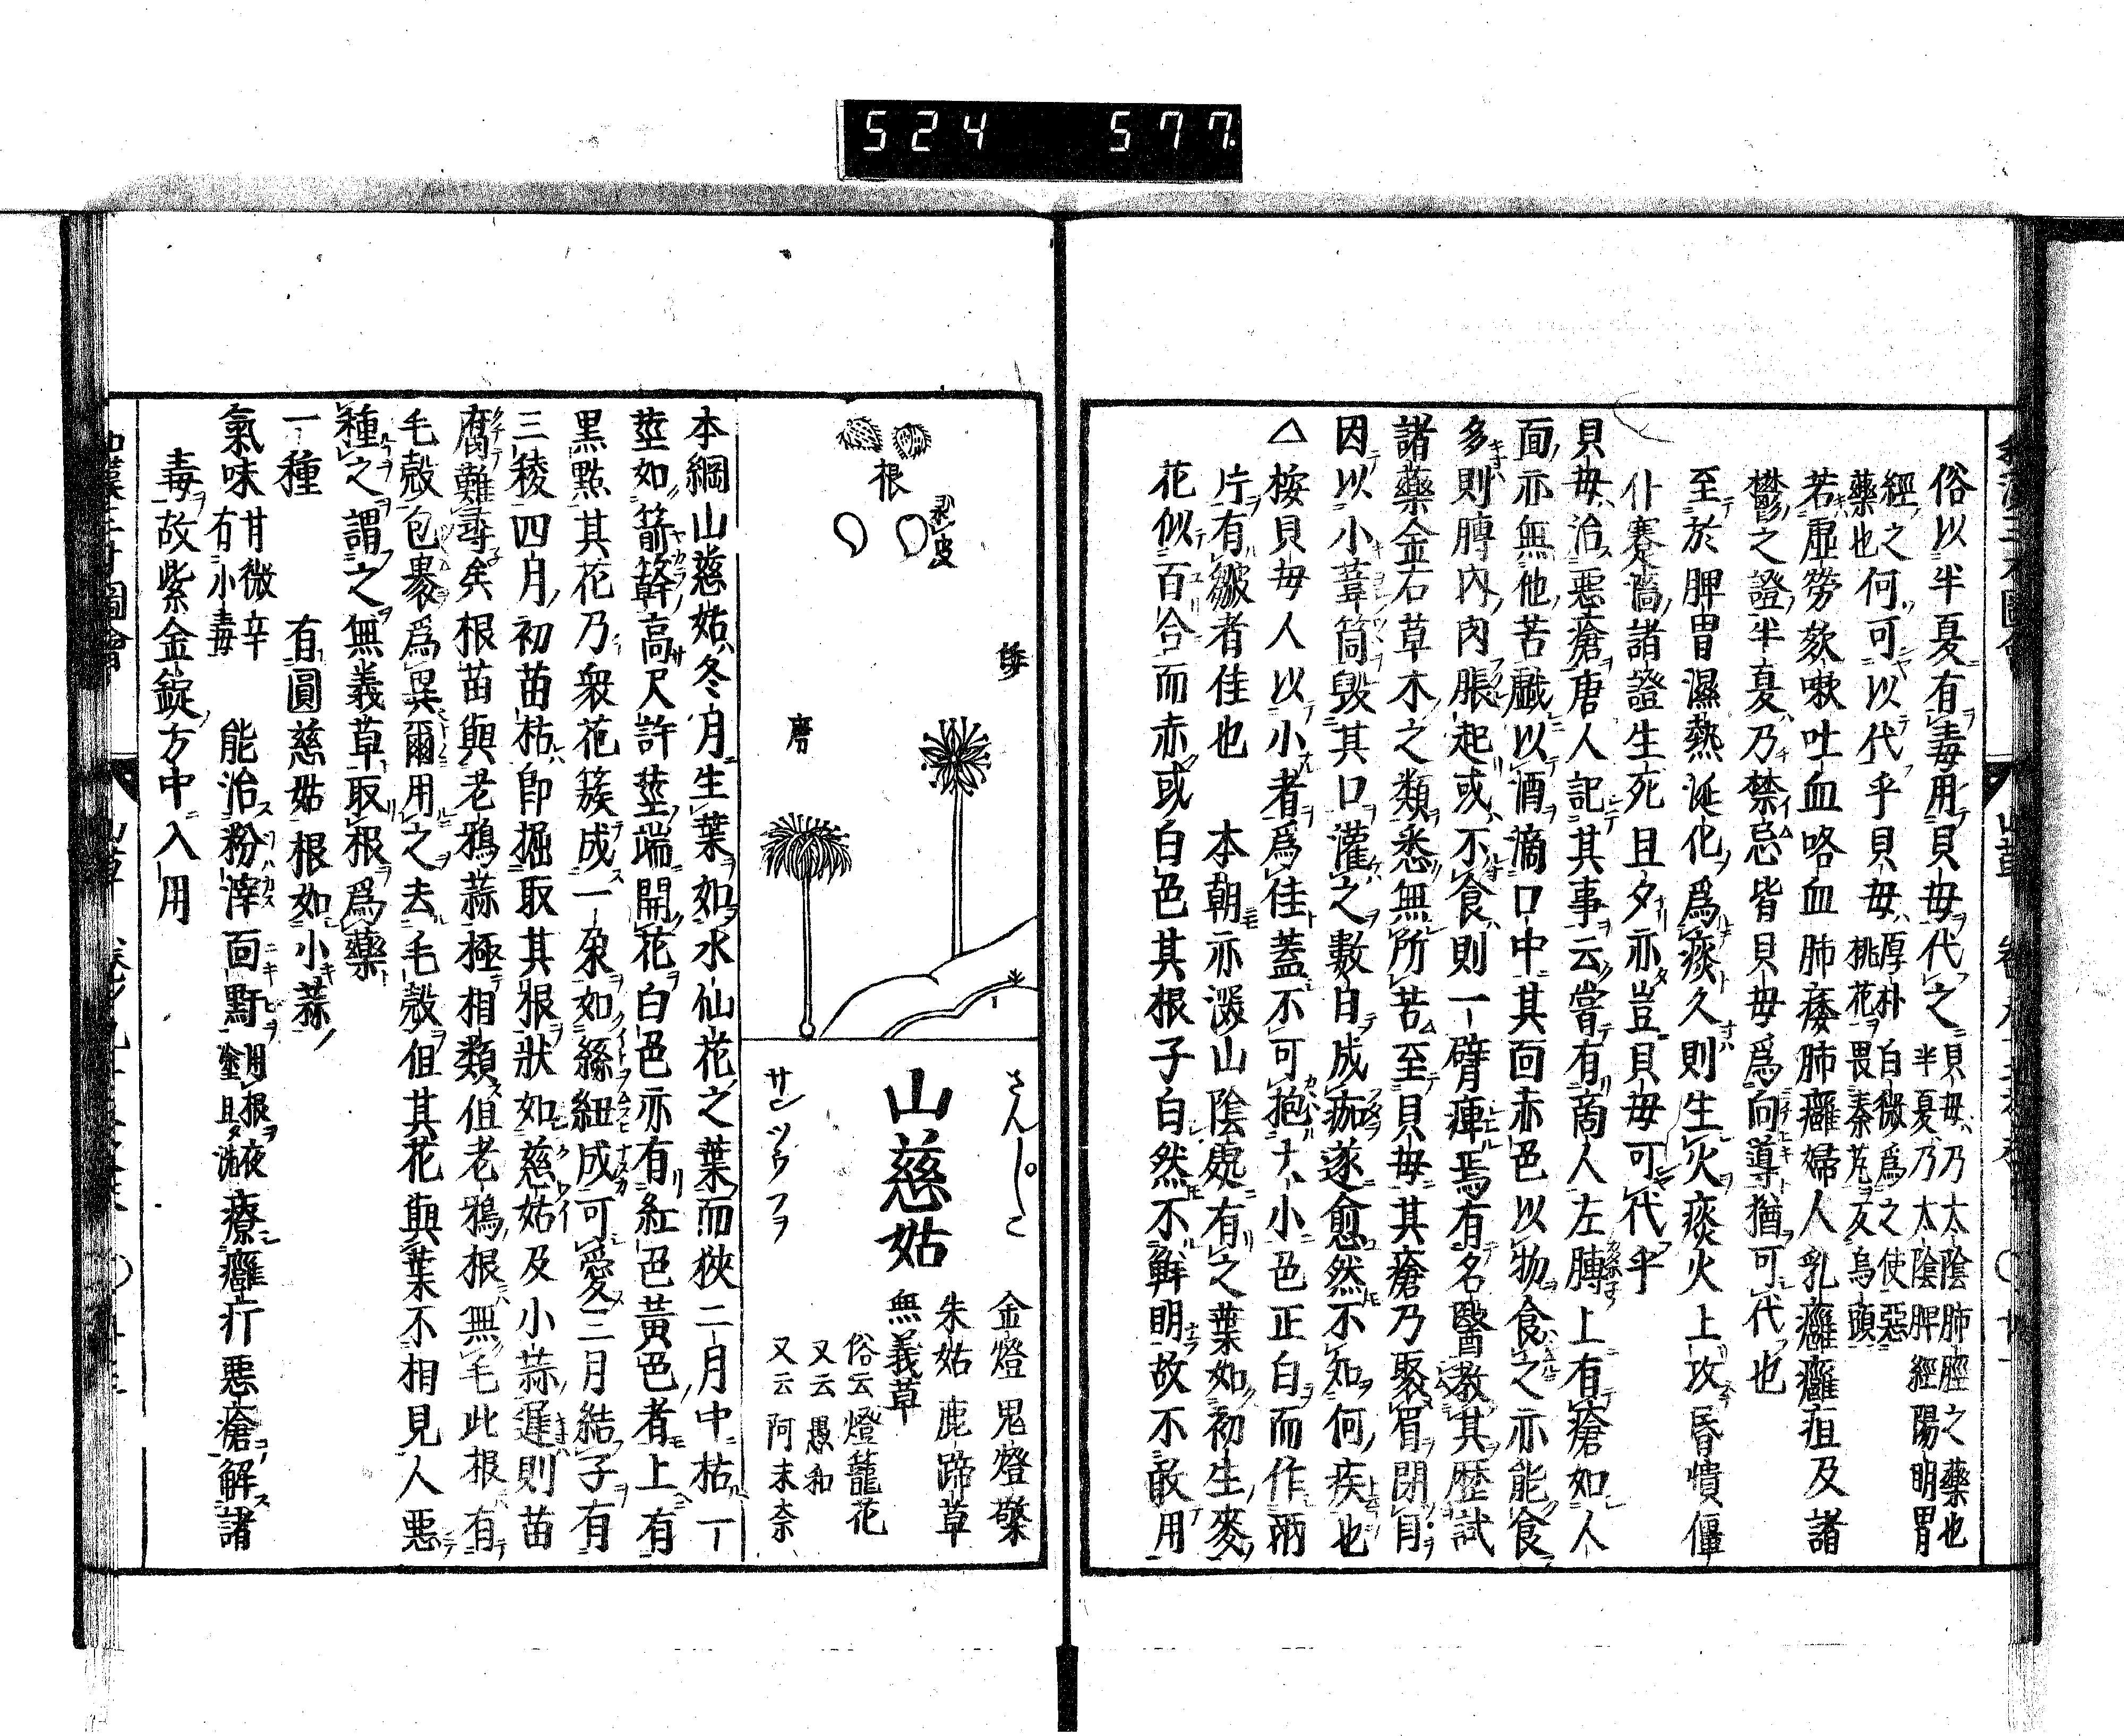 524 577.
俗以半夏有毒用貝母代之 貝母乃太陰肺經之藥也
半夏乃太陰脾經陽明胃
經之何可以代乎貝母 厚朴白微爲之使惡
藥也 桃花畏秦艽反烏頭
若虛勞欬嗽吐血咯血肺痿肺癰婦人乳癰癰疽及諸
鬱之證半夏乃禁忌皆貝母爲向導猶可代也
至於脾胃濕熱涎化爲痰久則生火痰火上攻昏憒僵
仆蹇諸證生死且夕亦豈貝母可代乎
貝母治惡瘡唐人記其事云嘗有商人左膊上有瘡如人
面亦無他苦戲以酒滴口中其面赤色以物食之亦能食
多則膊內肉脹起或不食則一臂痺焉有名醫教其歷試
諸藥金石草木之類悉無所苦至貝母其瘡乃聚眉閉目
因以小葦筒毀其口灌之數日成痂遂愈然不知何疾也
△按貝母人以小者爲佳蓋不可抱大小色正白而作兩
片有皺者佳也 本朝亦深山陰處有之葉如初生麥
花似百合而赤或白色其根子白然不鮮明故不敢用
根
剥皮
唐
さんじこ
山慈姑
サンツウフヲ
金燈 鬼燈檠
朱姑 鹿蹄草
無義草
俗云燈籠花
又云 愚和
又云 阿末奈
本綱山慈姑冬月生葉如水仙花之葉而狹二月中枯一
莖如箭簳高尺許莖端開花白色亦有紅色黃色者上有
黑點其花乃衆花簇成一朶如絲紐成可愛三月結子有
三稜四月初苗枯卽掘取其根狀如慈姑及小蒜遲則苗
腐難尋矣根苗與老鴉蒜極相類但老鴉根無毛此根有
毛殼包裹爲異爾用之去毛殼但其花與葉不相見人惡
種之謂之無義草取根爲藥
一種 有圓慈姑根如小蒜
氣味 甘微辛
有小毒 能治粉滓面䵟 用根夜
塗且洗 療癰疔惡瘡解諸
毒故紫金錠方中入用